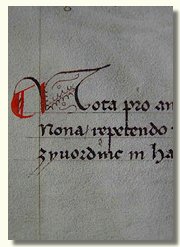 Nota pro an
Nona repetendo
zyuordnic in ha